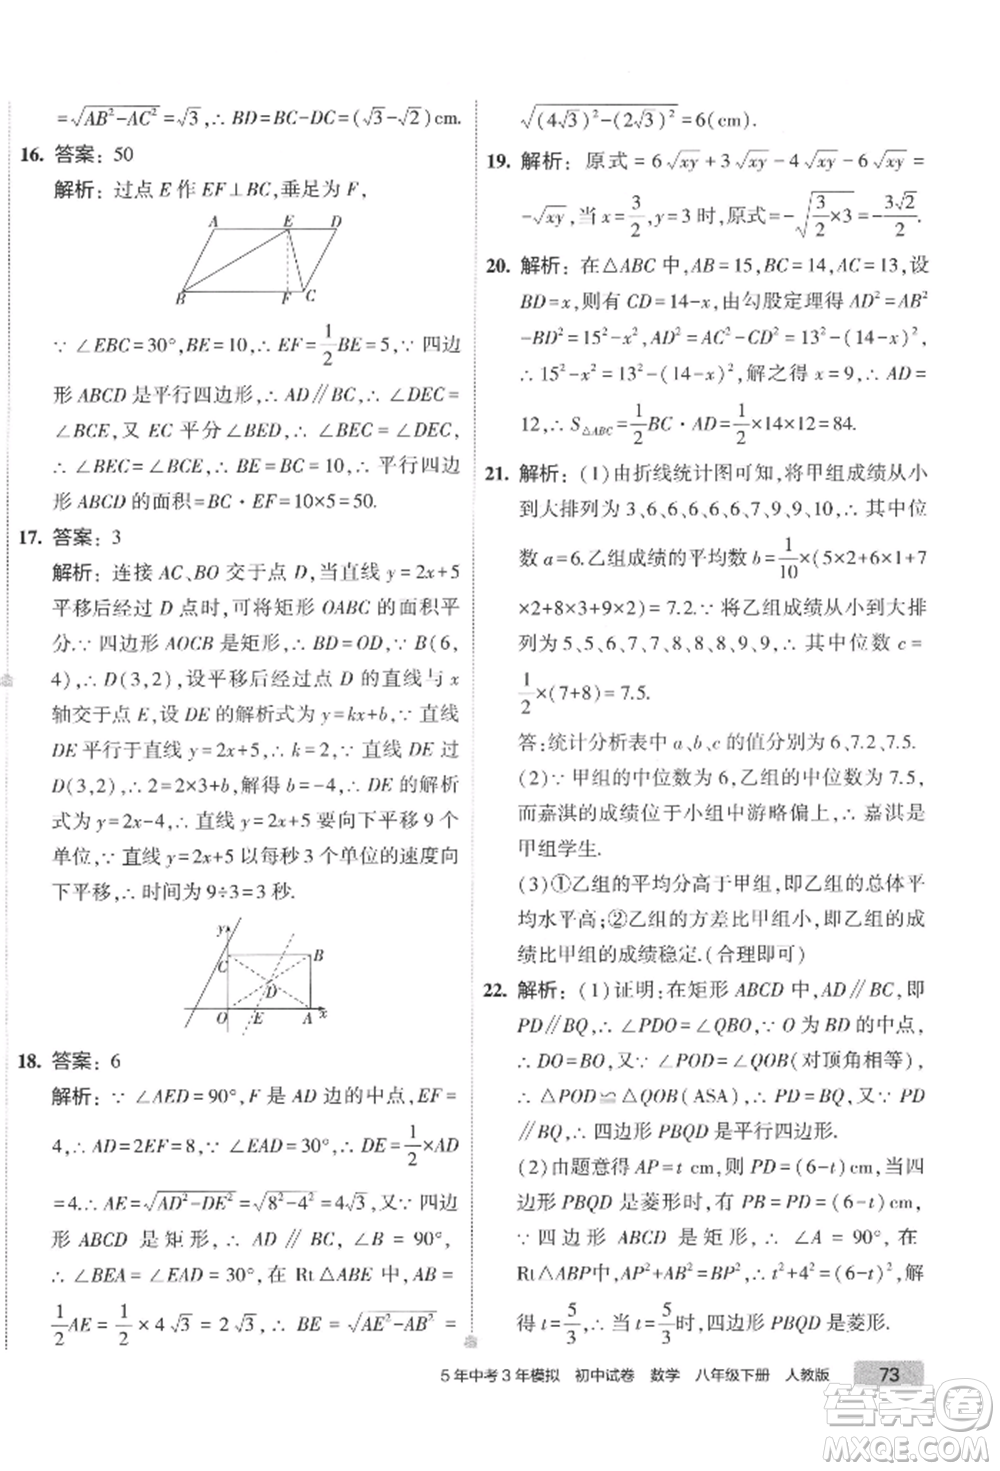 =√(AB²-AC²)=√3,∴BD=BC-DC=(√3-√2)cm.
16. 答案:50
解析:过点E作EF⊥BC,垂足为F,
A E D
B F C
∵∠EBC=30°,BE=10,∴EF=1/2BE=5,∵四边
形ABCD是平行四边形,∴AD∥BC,∴∠DEC=
∠BCE,又EC平分∠BED,∴∠BEC=∠DEC,
∴∠BCE=∠BEC,∴BE=BC=10,∴平行四边
形ABCD的面积=BC·EF=10×5=50.
17. 答案:3
解析:连接AC、BO交于点D,当直线y=2x+5
平移后经过D点时,可将矩形OABC的面积平
分.∵四边形AOCB是矩形,∴BD=OD,∵B(6,
4),∴D(3,2),设平移后经过点D的直线与x
轴交于点E,设DE的解析式为y=kx+b,∵直线
DE平行于直线y=2x+5,∴k=2,∵直线DE过
D(3,2),∴2=2×3+b,解得b=-4,∴DE的解析
式为y=2x-4,∴直线y=2x+5要向下平移9个
单位,∵直线y=2x+5以每秒3个单位的速度向
下平移,∴时间为9÷3=3秒.
y
C B
D
O E A x
18. 答案:6
解析:∵∠AED=90°,F是AD边的中点,EF=
4,∴AD=2EF=8,∵∠EAD=30°,∴DE=1/2×AD
=4.∴AE=√(AD²-DE²)=√(8²-4²)=4√3,又∵四边
形ABCD是矩形,∴AD∥BC,∠B=90°,
∴∠BEA=∠EAD=30°,在Rt△ABE中,AB=
1/2AE=1/2×4√3=2√3,∴BE=√(AE²-AB²)=
√((4√3)²-(2√3)²)=6(cm).
19. 解析:原式=6√xy+3√xy-4√xy-6√xy=
-√xy,当x=3/2,y=3时,原式=-√(3/2×3)=-3√2/2.
20. 解析:在△ABC中,AB=15,BC=14,AC=13,设
BD=x,则有CD=14-x,由勾股定理得AD²=AB²
-BD²=15²-x²,AD²=AC²-CD²=13²-(14-x)²,
∴15²-x²=13²-(14-x)²,解之得x=9,∴AD=
12,∴S△ABC=1/2BC·AD=1/2×14×12=84.
21. 解析:(1)由折线统计图可知,将甲组成绩从小
到大排列为3、6、6、6、6、6、7、9、9、10,∴其中位
数a=6.乙组成绩的平均数b=1/10×(5×2+6×1+7
×2+8×3+9×2)=7.2.∵将乙组成绩从小到大排
列为5、5、6、7、7、8、8、8、9、9,∴其中位数c=
1/2×(7+8)=7.5.
答:统计分析表中a、b、c的值分别为6、7.2、7.5.
(2)∵甲组的中位数为6,乙组的中位数为7.5,
而嘉淇的成绩位于小组中游略偏上,∴嘉淇是
甲组学生.
(3)①乙组的平均分高于甲组,即乙组的总体平
均水平高;②乙组的方差比甲组小,即乙组的成
绩比甲组的成绩稳定.(合理即可)
22. 解析:(1)证明:在矩形ABCD中,AD∥BC,即
PD∥BQ,∴∠PDO=∠QBO,∵O为BD的中点,
∴DO=BO,又∵∠POD=∠QOB(对顶角相等),
∴△POD≌△QOB(ASA),∴PD=BQ,又∵PD
∥BQ,∴四边形PBQD是平行四边形.
(2)由题意得AP=t cm,则PD=(6-t)cm,当四
边形PBQD是菱形时,有PB=PD=(6-t)cm,
∵四边形ABCD是矩形,∴∠A=90°,在
Rt△ABP中,AP²+AB²=PB²,∴t²+4²=(6-t)²,解
得t=5/3,∴当t=5/3时,四边形PBQD是菱形.
5年中考3年模拟 初中试卷 数学 八年级下册 人教版 73
答案圈
MXQE.COM